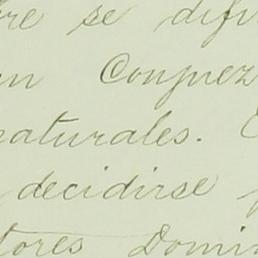 re se difu
n Conjuez
naturales.
decidirse
tores Domin